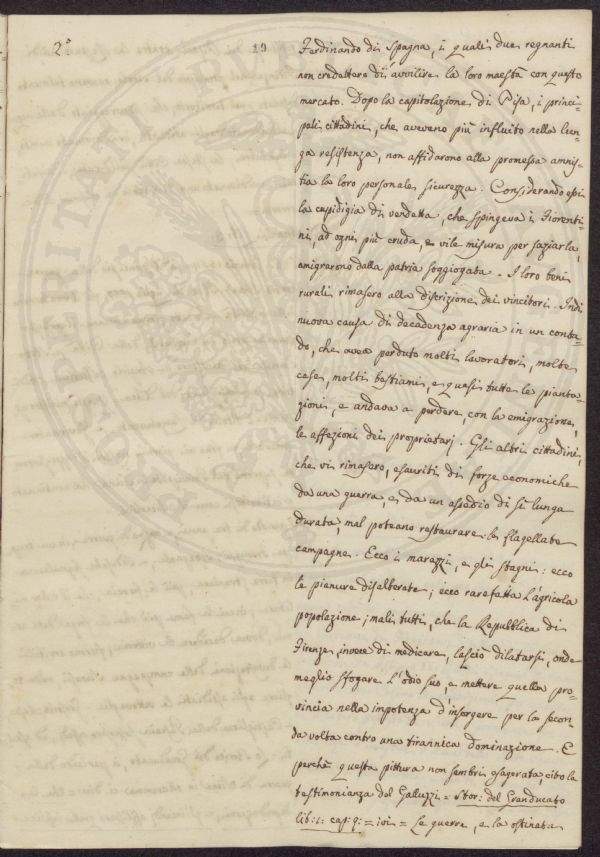 2.° 19
Ferdinando di Spagna, i quali due regnanti
non credettero di avvilire la loro maestà con questo
mercato. Dopo la capitolazione di Pisa, i princi-
pali cittadini, che aveveno più influito nella lun-
ga resistenza, non affidarono alla promessa amnis-
tia la loro personale sicurezza. Considerando essi
la cupidigia di vendetta, che spingeva i Fiorenti-
ni, ad ogni più cruda, e vile misura per saziarla,
emigrarono dalla patria soggiogata. I loro beni
rurali rimasero alla discrizione dei vincitori. Indi
nuova causa di decadenza agraria in un conta-
do, che avea perduto molti lavoratori, molte
case, molti bestiami, e quasi tutte le pianta-
zioni, e andava a perdere, con la emigrazione,
le affezioni dei proprietarj. Gli altri cittadini,
che vi rimasero, esauriti di forze economiche
da una guerra, e da un assedio di sì lunga
durata, mal poteano restaurare le flagellate
campagne. Ecco i marazzi, e gli stagni: ecco
le pianure disalberate; ecco rarefatta l'agricola
popolazione; mali tutti, che la Repubblica di
Firenze, invece di medicare, lasciò dilatarsi, onde
meglio sfogare l'odio suo, e mettere quella pro-
vincia nella impotenza d'insorgere per la secon-
da volta contro una tirannica dominazione. E
perchè questa pittura non sembri esagerata, cito la
testimonianza del Galluzzi = Stor: del Granducato
lib: 1: cap: 9: = ivi = Le guerre, e la ostinata
PROSPERITATI PUBLICAE